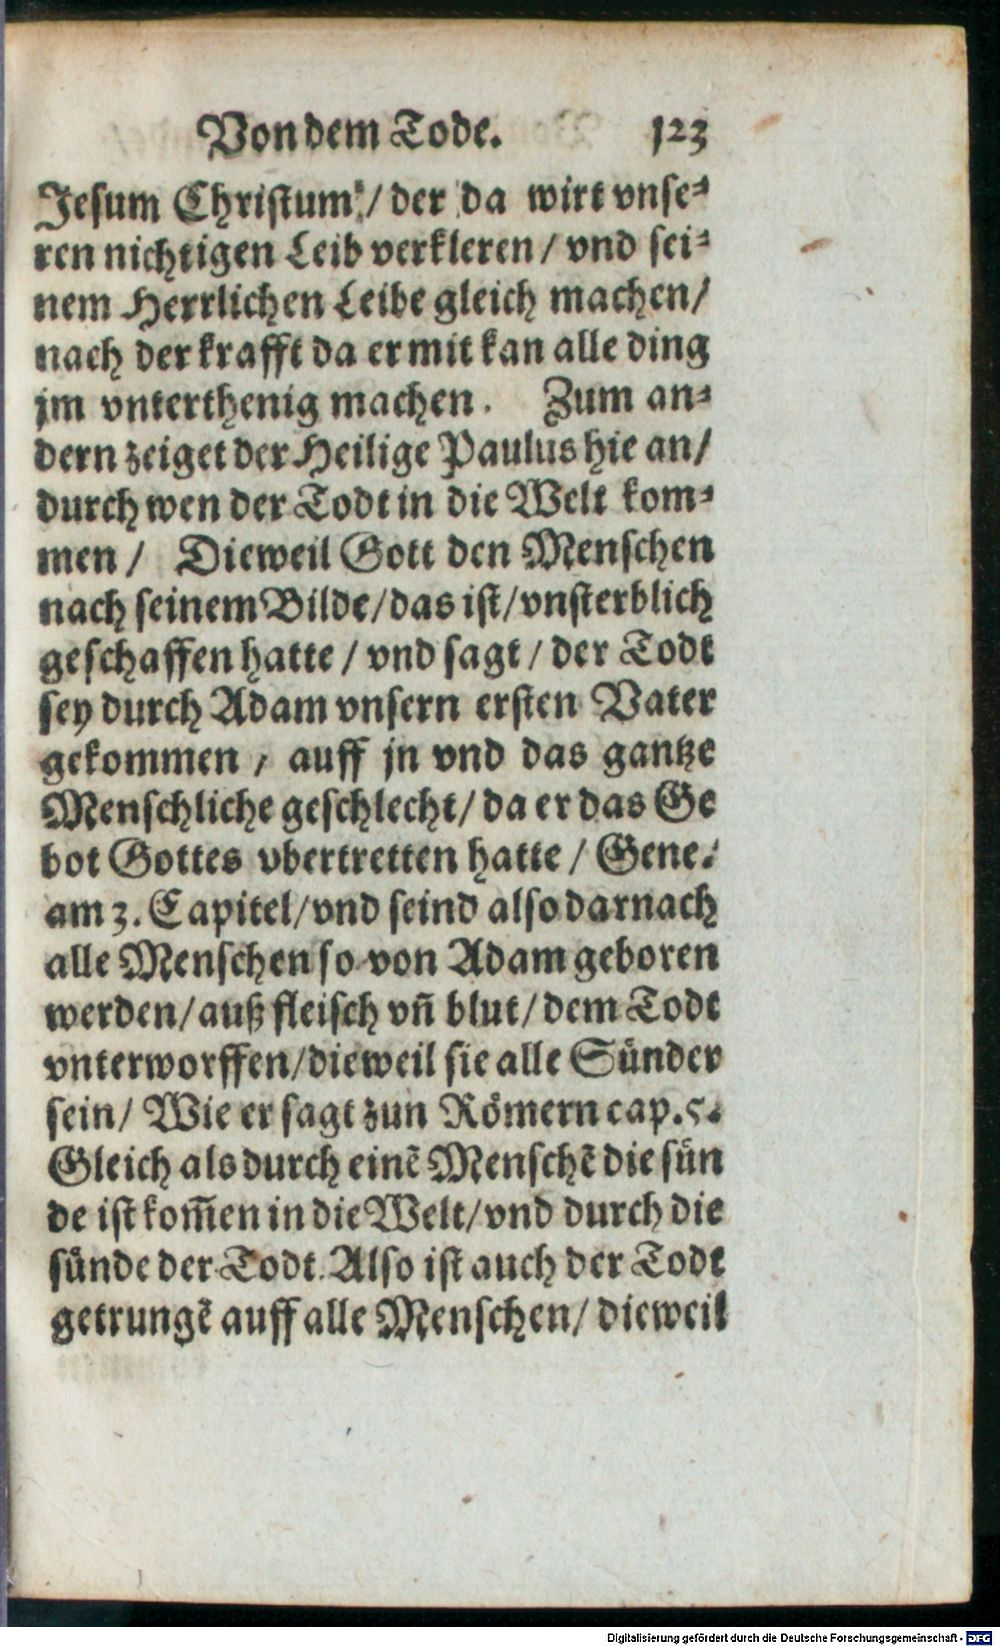 Von dem Tode. 123
Jesum Christum / der da wirt vnse⸗
ren nichtigen Leib verkleren / vnd sei⸗
nem Herrlichen Leibe gleich machen /
nach der krafft da er mit kan alle ding
jm vnterthenig machen. Zum an⸗
dern zeiget der Heilige Paulus hie an /
durch wen der Todt in die Welt kom⸗
men / Dieweil Gott den Menschen
nach seinem Bilde / das ist / vnsterblich
geschaffen hatte / vnd sagt / der Todt
sey durch Adam vnsern ersten Vater
gekommen / auff jn vnd das gantze
Menschliche geschlecht / da er das Ge
bot Gottes vbertretten hatte / Gene.
am 3. Capitel / vnd seind also darnach
alle Menschen so von Adam geboren
werden / auß fleisch vñ blut / dem Todt
vnterworffen / dieweil sie alle Sünder
sein / Wie er sagt zun Römern cap. 5.
Gleich als durch einẽ Menschẽ die sün
de ist kom̃en in die Welt / vnd durch die
sünde der Todt. Also ist auch der Todt
getrungẽ auff alle Menschen / dieweil
Digitalisierung gefördert durch die Deutsche Forschungsgemeinschaft - DFG